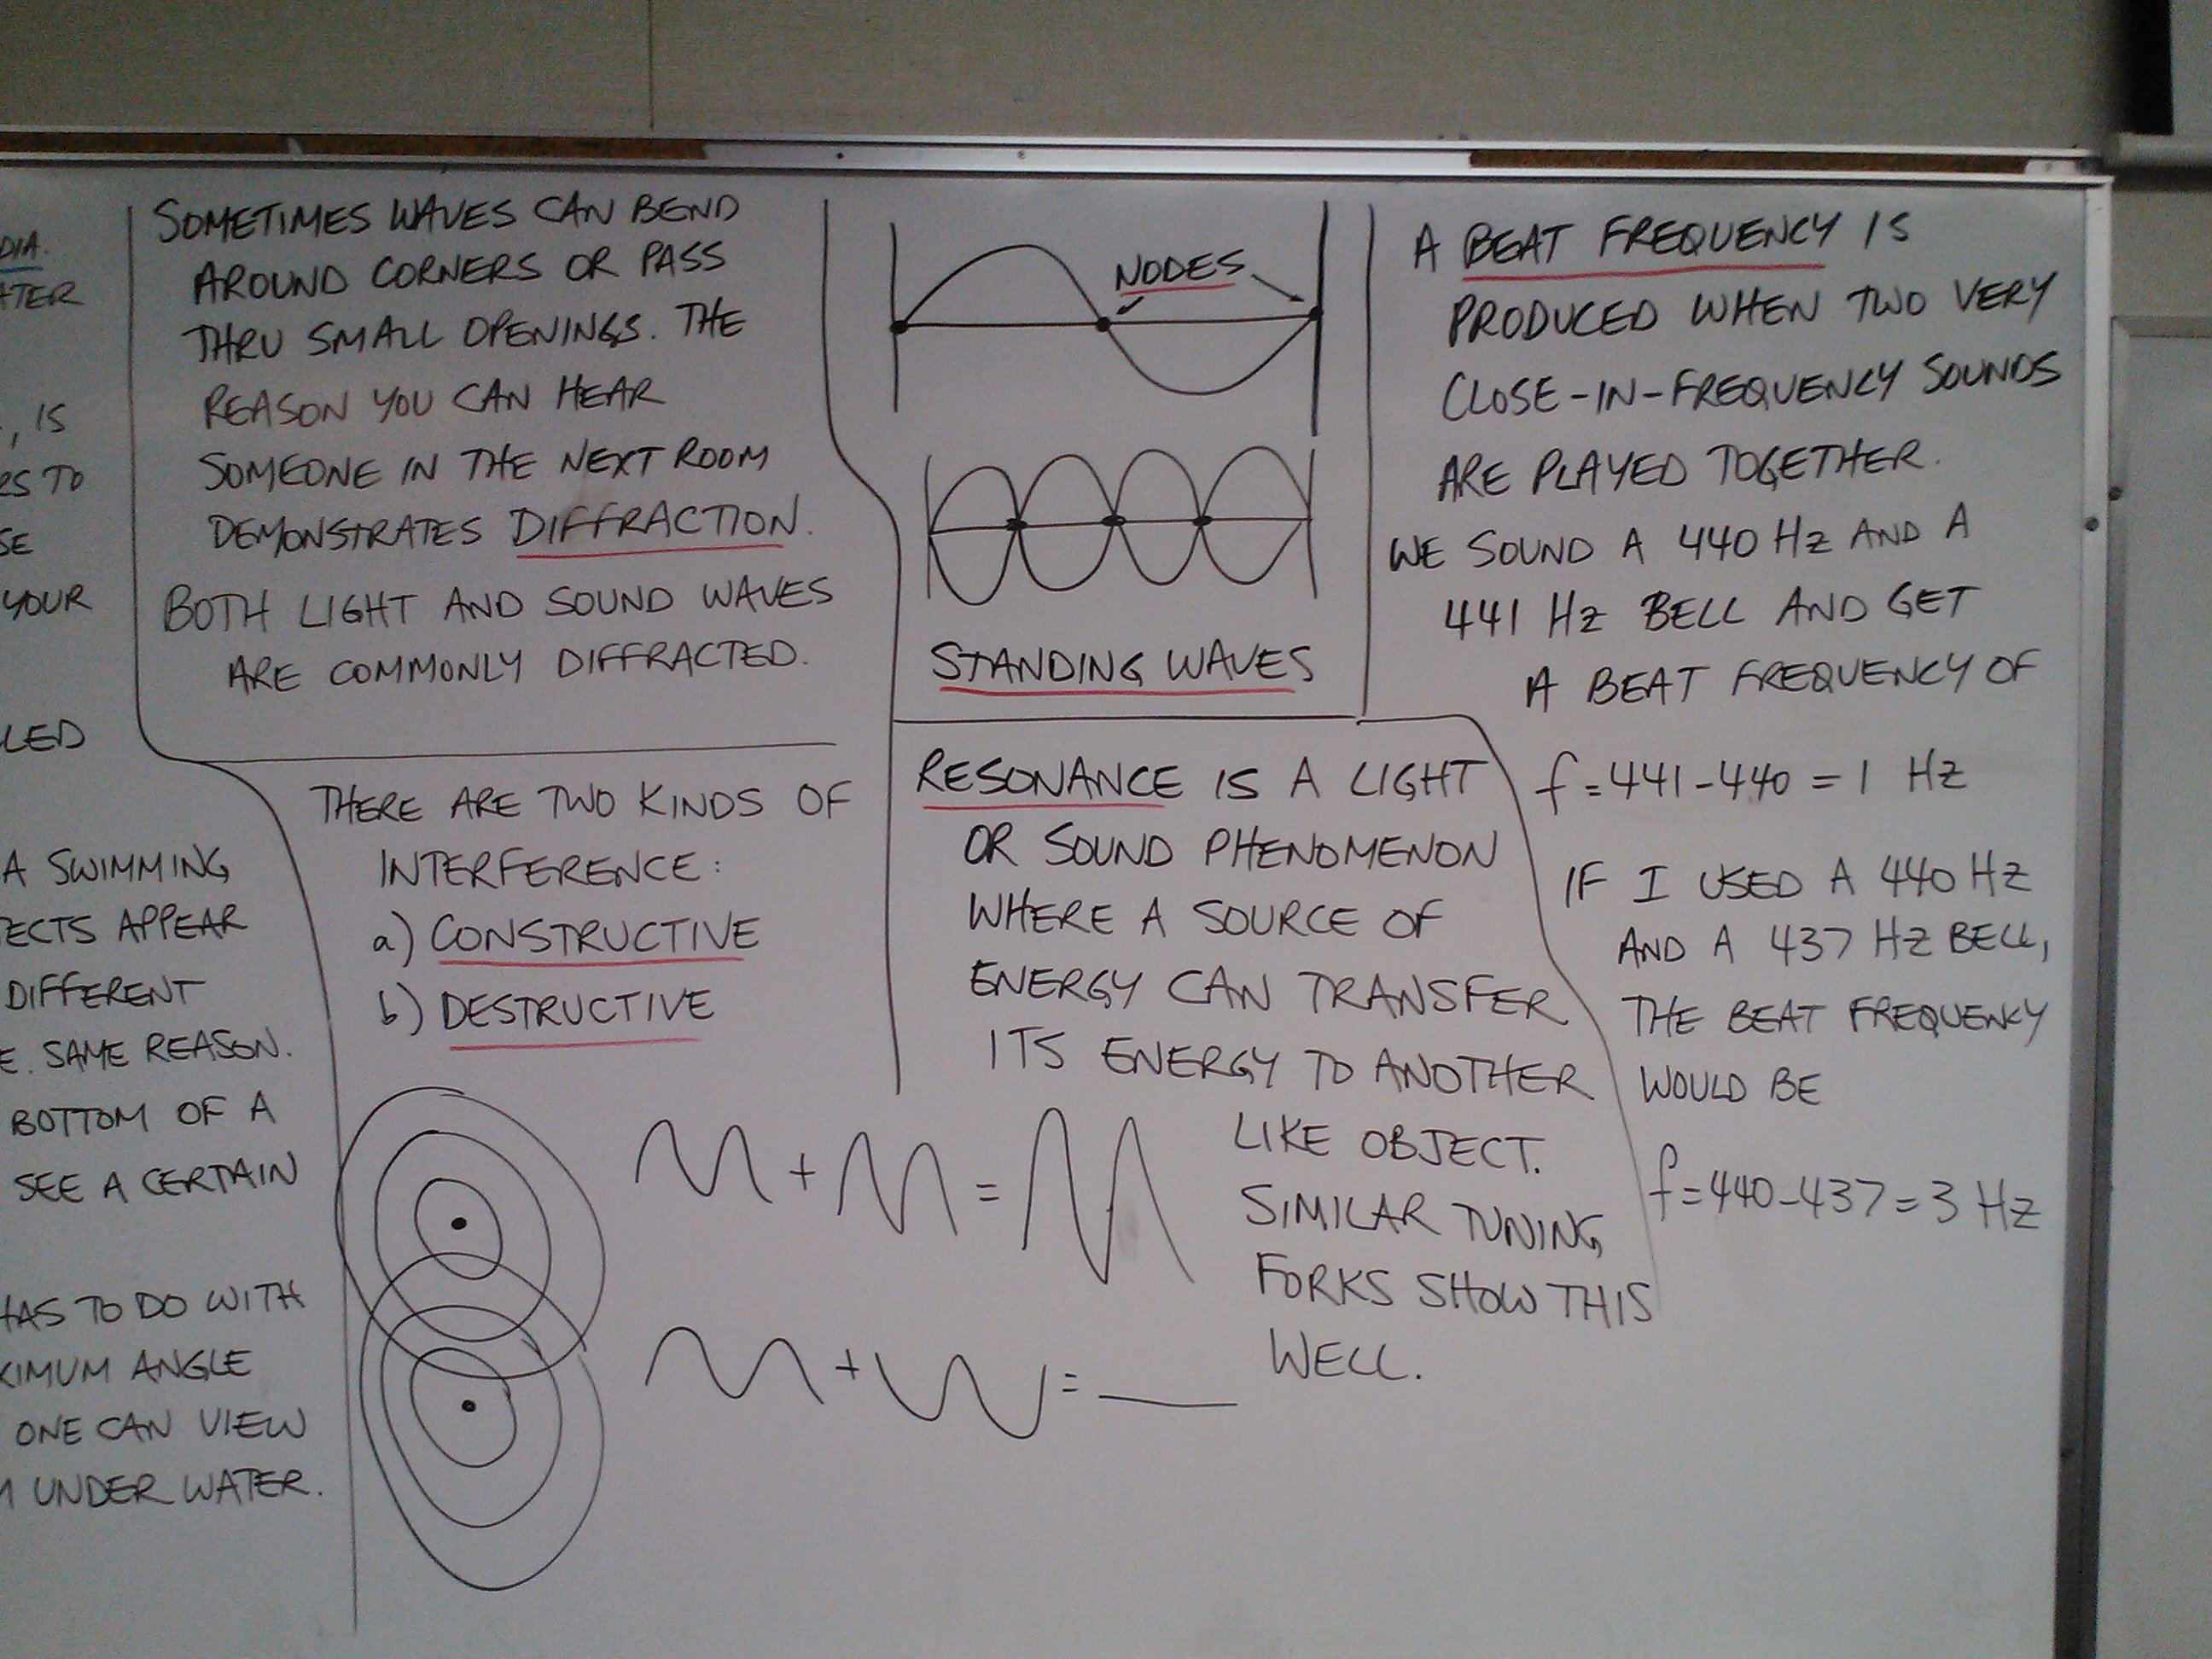 DIA.
ATER
, IS
RS TO
SE
YOUR
LED
A SWIMMING
JECTS APPEAR
DIFFERENT
E. SAME REASON.
BOTTOM OF A
SEE A CERTAIN
HAS TO DO WITH
XIMUM ANGLE
ONE CAN VIEW
UNDER WATER.
SOMETIMES WAVES CAN BEND
AROUND CORNERS OR PASS
THRU SMALL OPENINGS. THE
REASON YOU CAN HEAR
SOMEONE IN THE NEXT ROOM
DEMONSTRATES DIFFRACTION.
BOTH LIGHT AND SOUND WAVES
ARE COMMONLY DIFFRACTED.
THERE ARE TWO KINDS OF
INTERFERENCE:
a) CONSTRUCTIVE
b) DESTRUCTIVE
+ =
+ =
NODES
STANDING WAVES
RESONANCE IS A LIGHT
OR SOUND PHENOMENON
WHERE A SOURCE OF
ENERGY CAN TRANSFER
ITS ENERGY TO ANOTHER
LIKE OBJECT.
SIMILAR TUNING
FORKS SHOW THIS
WELL.
A BEAT FREQUENCY IS
PRODUCED WHEN TWO VERY
CLOSE-IN-FREQUENCY SOUNDS
ARE PLAYED TOGETHER.
WE SOUND A 440 Hz AND A
441 Hz BELL AND GET
A BEAT FREQUENCY OF
f = 441 - 440 = 1 Hz
IF I USED A 440 Hz
AND A 437 Hz BELL,
THE BEAT FREQUENCY
WOULD BE
f = 440 - 437 = 3 Hz